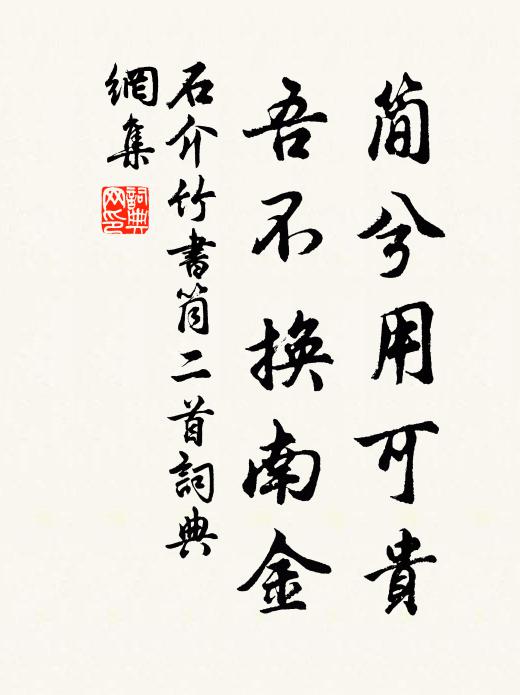 简兮用可貴
吾不換南金
石介竹書筒二首詞典
網集
詞典
网印